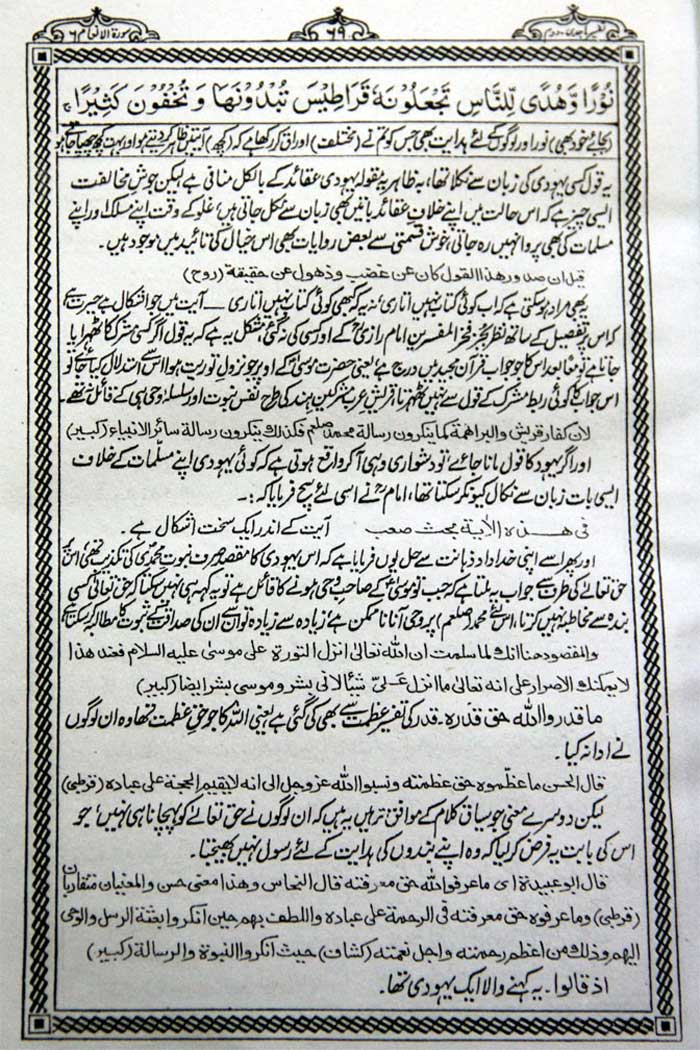 تفسیر ماجدی۔ دوم
۶۹
سورۃ الانعام ۶
نُورًا وَّهُدًى لِّلنَّاسِ تَجْعَلُوْنَهٗ قَرَاطِيْسَ تُبْدُوْنَهَا وَتُخْفُوْنَ كَثِيْرًا ۚ
(بجائے خود بھی) نور اور لوگوں کے لئے ہدایت بھی جس کو تم نے (مختلف) اوراق کر رکھا ہے کہ (کچھ) آیتیں ظاہر کر دیتے ہو اور بہت کچھ چھپا جاتے ہو
یہ قول کسی یہودی کی زبان سے نکلا تھا، یہ ظاہر یہ مقولہ یہودی عقائد کے بالکل منافی ہے لیکن جوشِ مخالفت
ایسی چیز ہے کہ اس حالت میں اپنے خلافِ عقائد باتیں بھی زبان سے نکل جاتی ہیں، غلو کے وقت اپنے مسلک اور اپنے
مسلمات کی بھی پروا نہیں رہ جاتی، خوش قسمتی سے بعض روایات بھی اس خیال کی تائید میں موجود ہیں۔
قیل ان صدور هذا القول كان عن غضب وذهول عن حقيقة (روح)
یہ بھی مراد ہو سکتی ہے کہ اب کوئی کتاب نہیں اتاری، نہ یہ کہ کبھی کوئی کتاب نہیں اتاری — آیت میں جو اشکال ہے حیرت ہے
کہ اس پر تفصیل کے ساتھ نظر بجز فخر المفسرین امام رازیؒ کے اور کسی کی نہ گئی، مشکل یہ ہے کہ یہ قول اگر کسی مشرک کا ٹھہرایا
جاتا ہے تو معًا بعد اس کا جو جواب قرآن مجید میں درج ہے، یعنی حضرت موسیٰؑ کے اوپر جو نزولِ توریت ہوا اس سے استدلال کیا ہے تو
اس جواب کا کوئی ربط مشرک کے قول سے نہیں ٹھہرتا، قریش عرب مشرکین ہند کی طرح نفس نبوت اور سلسلۂ وحی ہی کے قائل نہ تھے۔
لان کفار قریش والبراهمة کما ینکرون رسالة محمد صلعم فکذلك ینکرون رسالة سائر الانبیاء (کبیر)
اور اگر یہود کا قول مانا جائے تو دشواری وہی آ کر واقع ہوتی ہے کہ کوئی یہودی اپنے مسلّمات کے خلاف
ایسی بات زبان سے نکال کیونکر سکتا تھا، امامؒ نے اسی لئے سچ فرمایا کہ :۔
فی هذه الآیة بحث صعب آیت کے اندر ایک سخت اشکال ہے۔
اور پھر اسے اپنی خداداد ذہانت سے حل یوں فرمایا ہے کہ اس یہودی کا مقصد صرف نبوت محمدیؐ کی تکذیب تھی، اس پر
حق تعالےٰ کی طرف سے جواب یہ ملتا ہے کہ جب تو موسیٰؑ کے صاحبِ وحی ہونے کا قائل ہے تو یہ کہہ ہی نہیں سکتا کہ حق تعالیٰ کسی
بندہ سے مخاطبہ نہیں کرتا، اس لئے محمد (صلعم) پر وحی آنا ناممکن ہے، زیادہ سے زیادہ تو ان سے ان کی صداقت کے ثبوت کا مطالبہ کر سکتا ہے
والمقصود هنا انك لما سلمت ان الله تعالیٰ انزل التورة علی موسیٰ علیه السلام فعند هذا
لا یمکنك الاصرار علی انه تعالیٰ ما انزل علیّ شیئا لانی بشر و موسیٰ بشر ایضا (کبیر)
ما قدروا الله حق قدره۔ قدر کی تفسیر عظمت سے بھی کی گئی ہے یعنی اللہ کا جو حقِ عظمت تھا وہ ان لوگوں
نے ادا نہ کیا۔
قال الحسن ما عظّموه حق عظمته ونسبوا الله عزوجل الی انه لا یقیم الحجة علی عباده (قرطبی)
لیکن دوسرے معنی جو سیاق کلام کے موافق تر ہیں یہ ہیں کہ ان لوگوں نے حق تعالےٰ کو پہچانا ہی نہیں، جو
اس کی بابت یہ فرض کر لیا کہ وہ اپنے بندوں کی ہدایت کے لئے رسول نہیں بھیجتا۔
قال ابوعبیدة ای ما عرفوا الله حق معرفته قال النحاس وهذا معنی حسن والمعنیان متقاربان
(قرطبی) وما عرفوه حق معرفته فی الرحمة علی عباده واللطف بهم حین انکروا بعثة الرسل والوحی
الیهم وذلك من اعظم رحمته واجل نعمته (کشاف) حیث انکروا النبوة والرسالة (کبیر)
اذ قالوا۔ یہ کہنے والا ایک یہودی تھا۔